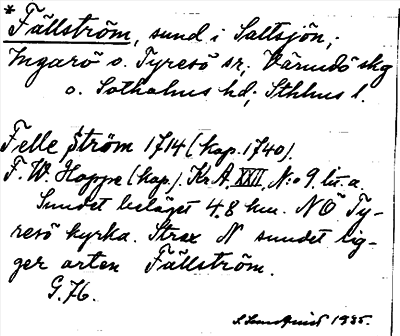 * Fällström, sund i Saltsjön,
Ingarö o. Tyresö sr; Värmdö skg
o. Sotholms hd; Sthlms l.
Felle Ström 1714 (kop. 1740).
F. W. Hoppe (kop.). Kr A. XXII, N:o 9. lit. a.
Sundet beläget 4,8 km. N Ö Ty-
resö kyrka. Strax N sundet lig-
ger orten Fällström.
G. 76.
1935.